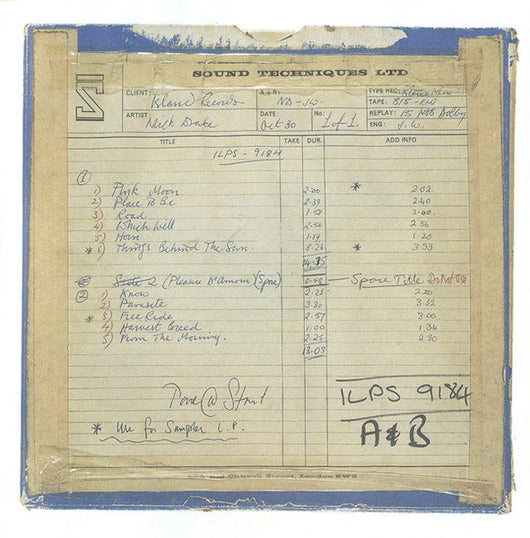 SOUND TECHNIQUES LTD
CLIENT: Island Records A+R: ND - JW. TYPE REC: Stereo Mix
ARTIST Nick Drake DATE: Oct 30 No: 1 of 1. TAPE: 815-EMI
REPLAY: 15 NAB Dolby
ENG: J.W.
TITLE TAKE DUR. ADD INFO
ILPS - 9184
①
1) Pink Moon 2.00 * 2.02
2) Place To Be 2.39 2.40
3) Road 1.58 2.00
4) Which Will 2.56 2.56
5) Horn 1.19 1.20
* 6) Things Behind The Sun. 3.23 * 3.53
14.15
Side 2 (Plaisir D'amour) (Spare) 0.43 Spare Title Do Not Use
②
1) Know 2.23 2.20
2) Parasite 3.30 3.32
* 3) Free Ride 2.57 3.00
4) Harvest Breed 1.00 1.34
5) From The Morning. 2.25 2.30
13.03
Tone @ Start
ILPS 9184
A & B
* Use for Sampler L.P.
Church Street, London SW3